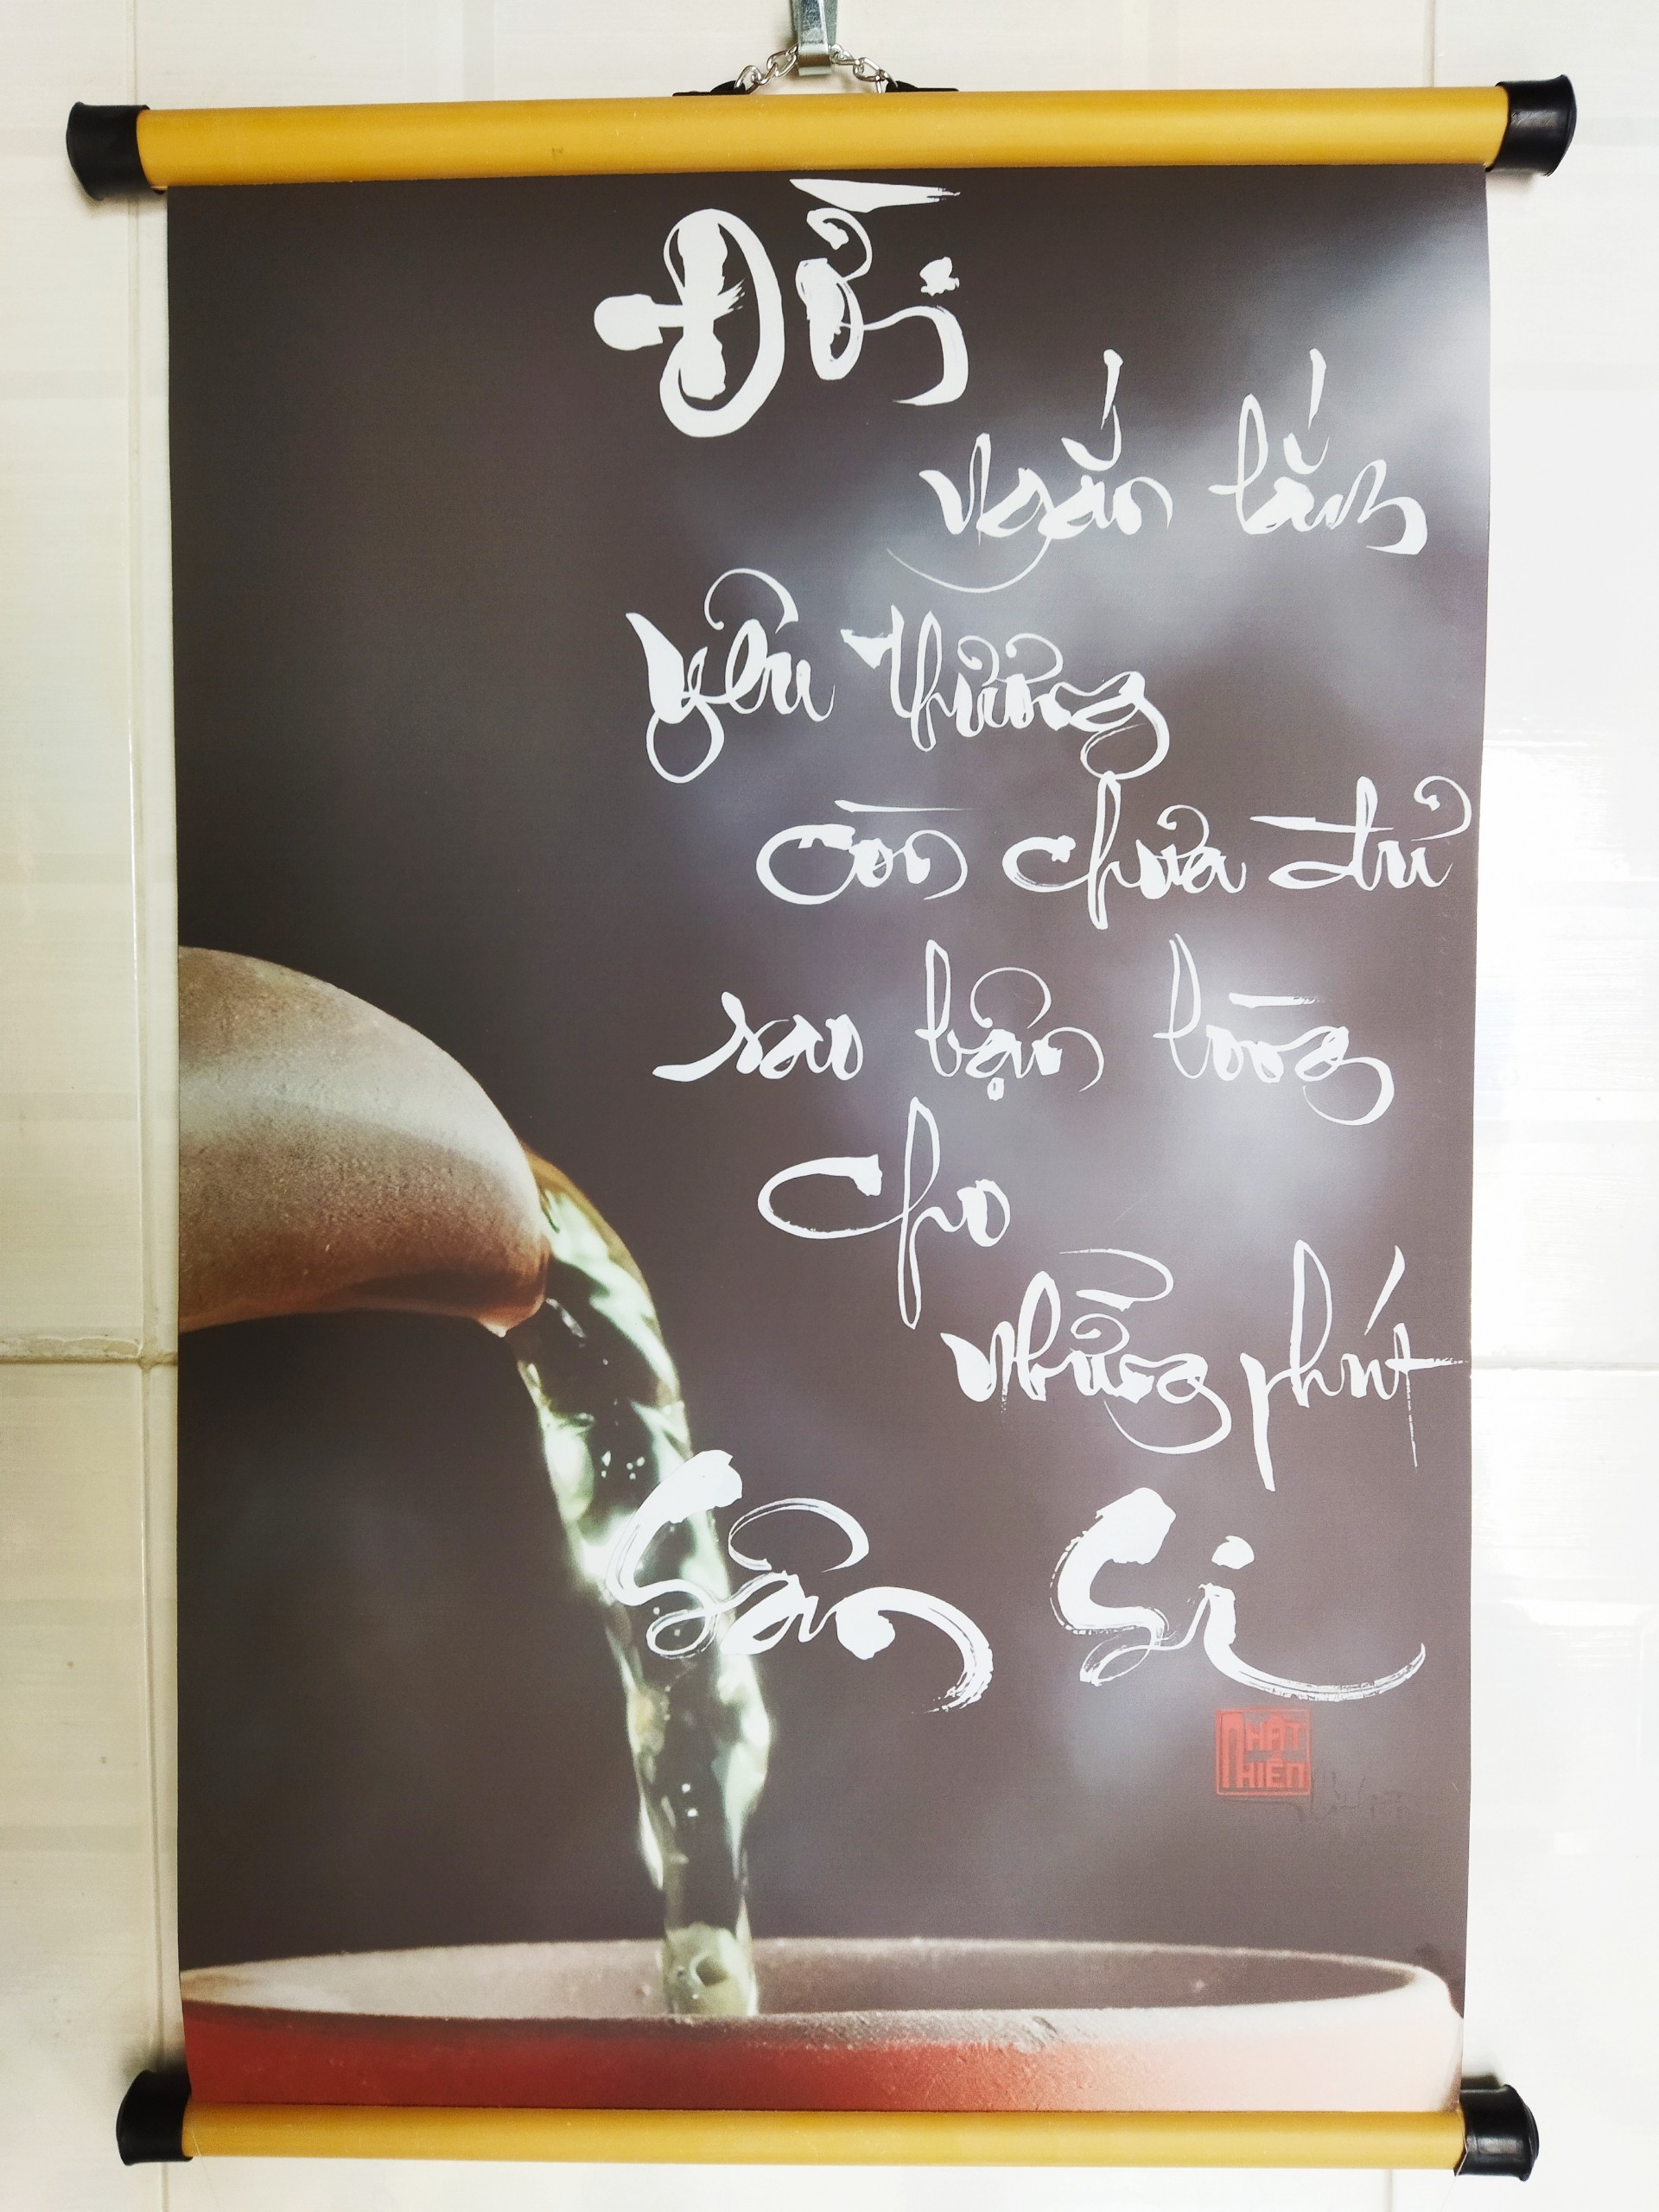 Đời
ngắn lắm
yêu thương
còn chưa đủ
sao bận lòng
cho
những phút
Sân Si
NHẬT
NHIÊN